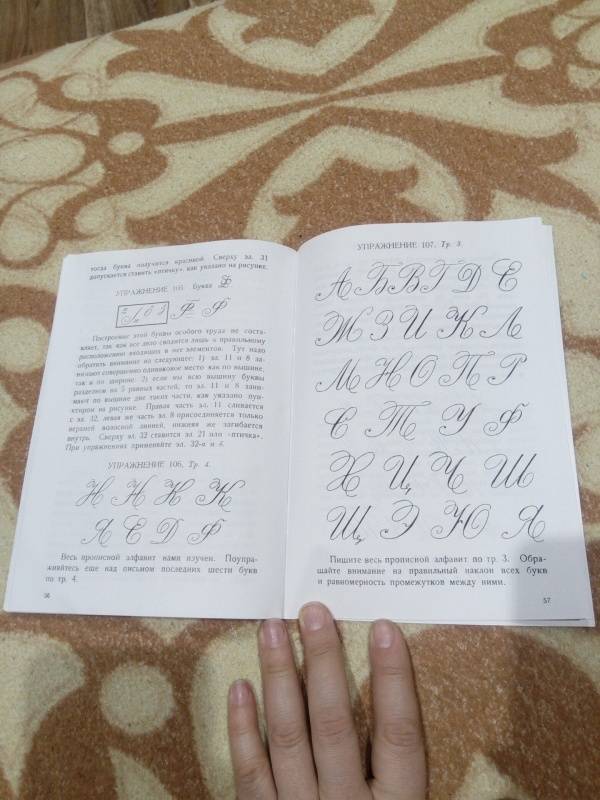 тогда буква получится красивой. Сверху эл. 31
допускается ставить «птичку», как указано на рисунке.
УПРАЖНЕНИЕ 105, буква Ф
Ф Ф
Построение этой буквы особого труда не соста-
вляет, так как все дело сводится лишь к правильному
расположению входящих в нее элементов. Тут надо
обратить внимание на следующее: 1) эл. 11 и 8 за-
нимают совершенно одинаковое место как по вышине,
так и по ширине; 2) если мы всю вышину буквы
разделим на 5 равных частей, то эл. 11 и 8 зани-
мают по вышине две таких части, как указано пун-
ктиром на рисунке. Правая часть эл. 11 сливается
с эл. 32, левая же часть эл. 8 присоединяется только
верхней волосной линией, нижняя же загибается
внутрь. Сверху эл. 32 ставится эл. 21 или «птичка».
При упражнениях применяйте эл. 32-а и б.
УПРАЖНЕНИЕ 106, Тр. 4.
Н Н К К
Я С D Ф
Весь прописной алфавит нами изучен. Поупра-
жняйтесь еще над письмом последних шести букв
по тр. 4.
56
УПРАЖНЕНИЕ 107, Тр. 3.
А Б В Г Д Е
Ж З И К Л
М Н О П Р
С Т У Ф
Х Ц Ч Ш
Щ Э Ю Я
Пишите весь прописной алфавит по тр. 3. Обра-
щайте внимание на правильный наклон всех букв
и равномерность промежутков между ними.
57